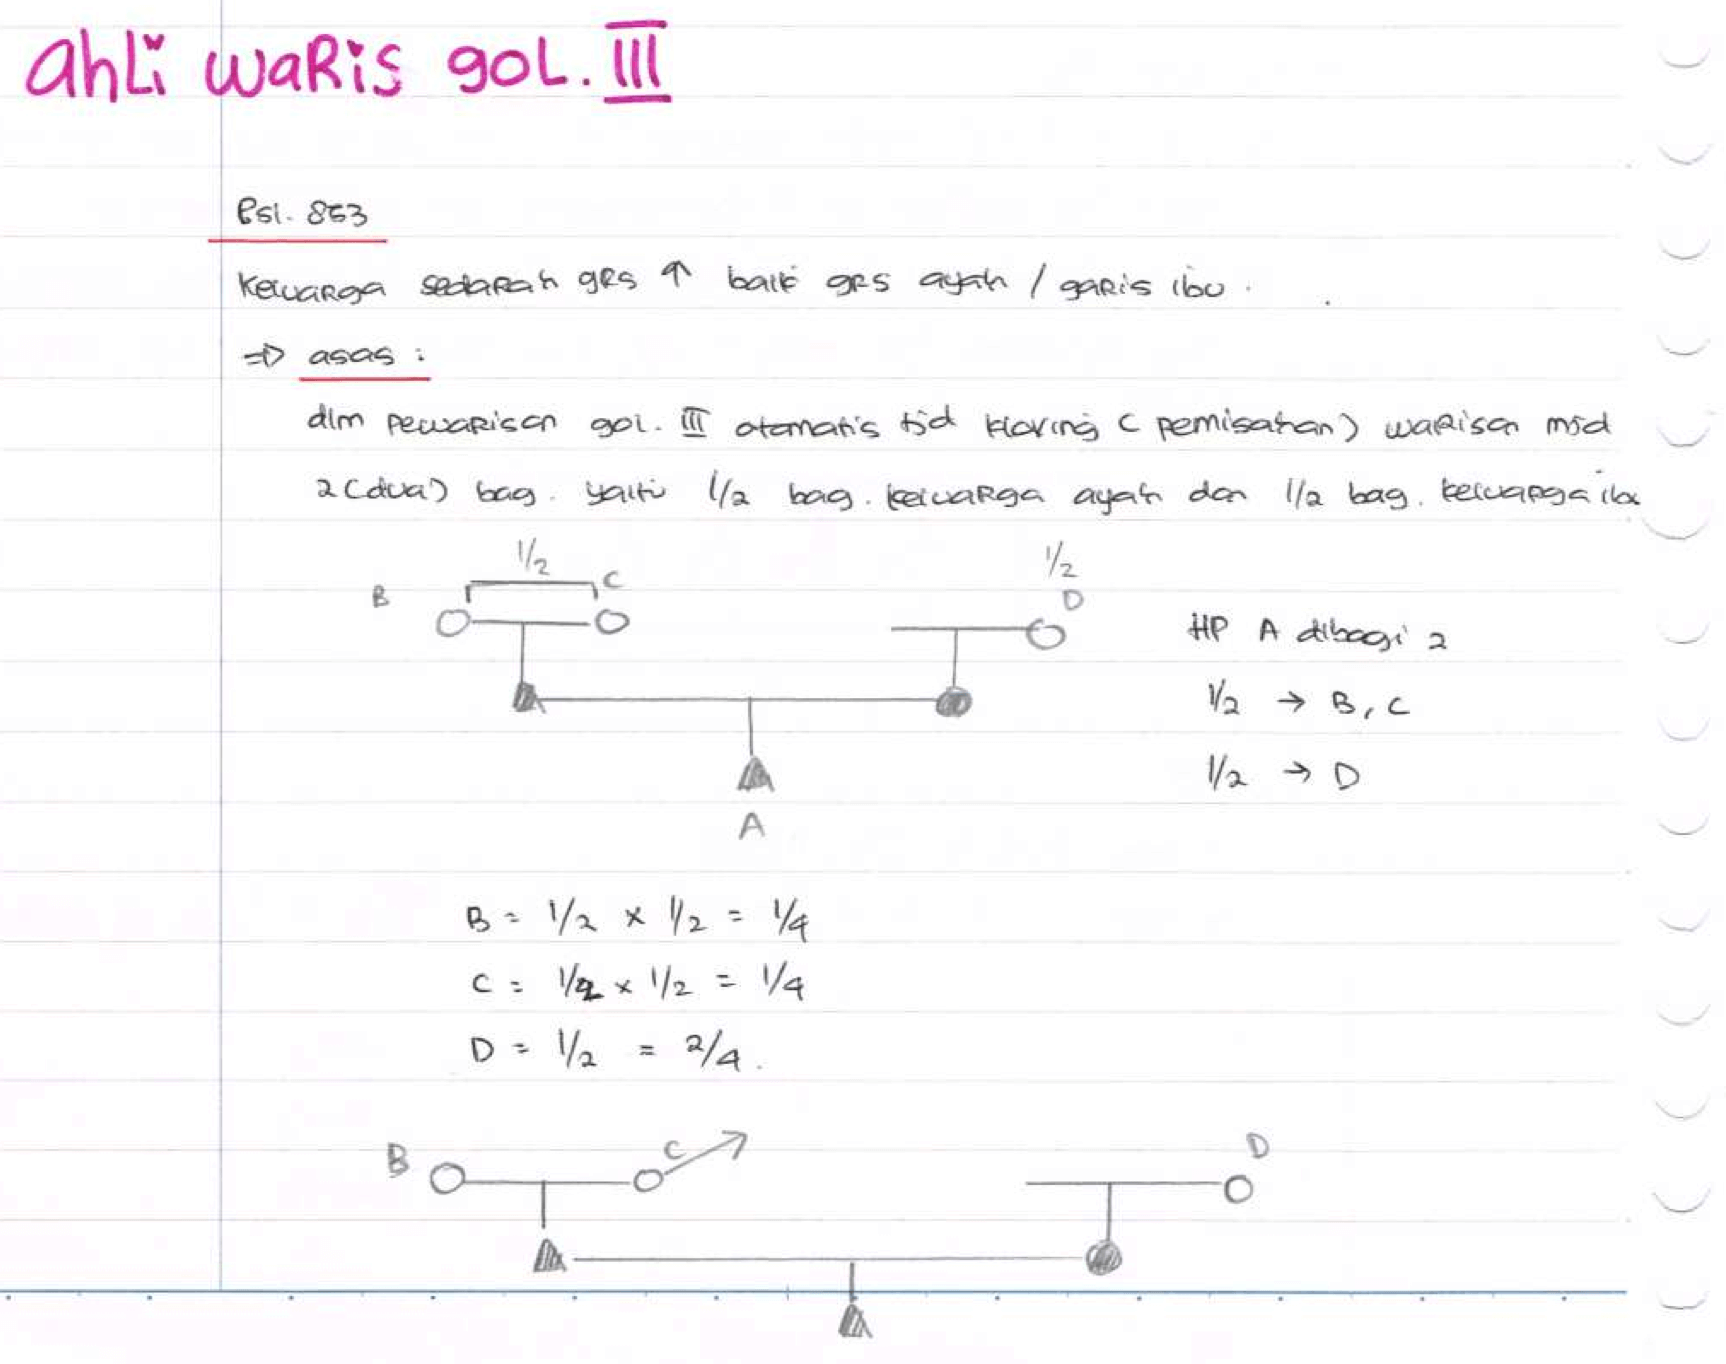 ahli waRis gol. III
Psl. 853
Keluarga sedarah grs ↑ baik grs ayah / garis ibu.
⇒ asas :
dlm pewarisan gol. III otomatis tjd kloving ( pemisahan) warisan mjd
2 (dua) bag. yaitu 1/2 bag. keluarga ayah dan 1/2 bag. keluarga ibu
1/2 1/2
B C D
HP A dibagi 2
1/2 → B, C
1/2 → D
A
B = 1/2 x 1/2 = 1/4
C = 1/2 x 1/2 = 1/4
D = 1/2 = 2/4.
B C D